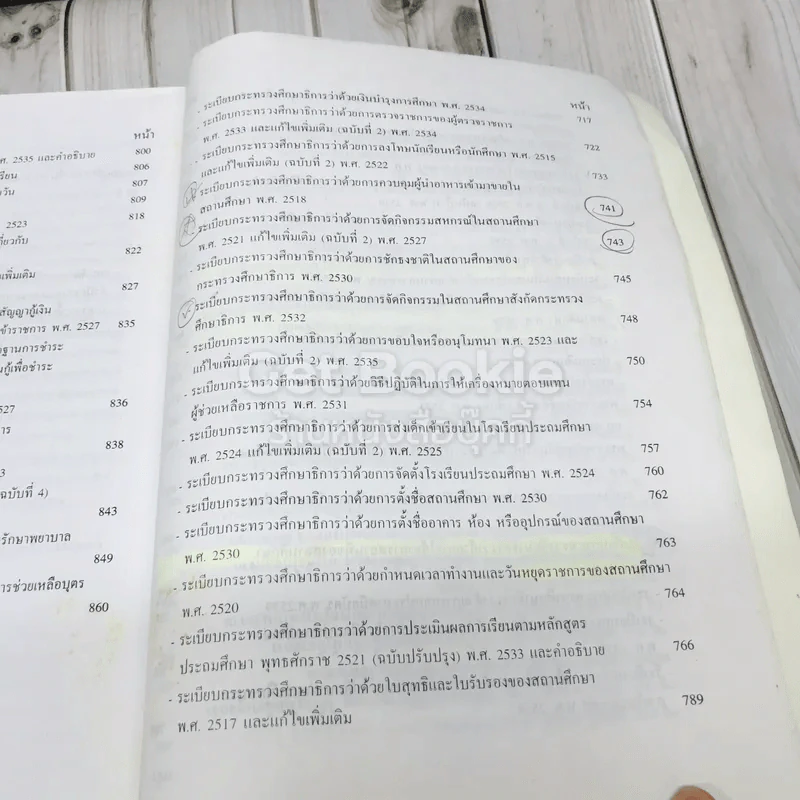 หน้า
ศ. 2535 และคำอธิบาย 800
เรียน 806
วัน 807
809
2523 818
กี่ยวกับ
822
เพิ่มเติม
827
สัญญากู้เงิน
ข้าราชการ พ.ศ. 2527 835
ฐานการชำระ
นกู้เพื่อชำระ
2527 836
การ
838
3
ฉบับที่ 4)
843
รักษาพยาบาล
849
การช่วยเหลือบุตร
860
- ระเบียบกระทรวงศึกษาธิการว่าด้วยเงินบำรุงการศึกษา พ.ศ. 2534 หน้า
- ระเบียบกระทรวงศึกษาธิการว่าด้วยการตรวจราชการของผู้ตรวจราชการ 717
พ.ศ. 2533 และแก้ไขเพิ่มเติม (ฉบับที่ 2) พ.ศ. 2534
- ระเบียบกระทรวงศึกษาธิการว่าด้วยการลงโทษนักเรียนหรือนักศึกษา พ.ศ. 2515 722
และแก้ไขเพิ่มเติม (ฉบับที่ 2) พ.ศ. 2522
- ระเบียบกระทรวงศึกษาธิการว่าด้วยการควบคุมผู้นำอาหารเข้ามาขายใน 733
สถานศึกษา พ.ศ. 2518 741
- ระเบียบกระทรวงศึกษาธิการว่าด้วยการจัดกิจกรรมสหกรณ์ในสถานศึกษา
พ.ศ. 2521 แก้ไขเพิ่มเติม (ฉบับที่ 2) พ.ศ. 2527 743
- ระเบียบกระทรวงศึกษาธิการว่าด้วยการชักธงชาติในสถานศึกษาของ
กระทรวงศึกษาธิการ พ.ศ. 2530 745
- ระเบียบกระทรวงศึกษาธิการว่าด้วยการจัดกิจกรรมในสถานศึกษาสังกัดกระทรวง
ศึกษาธิการ พ.ศ. 2532 748
- ระเบียบกระทรวงศึกษาธิการว่าด้วยการขอบใจหรืออนุโมทนา พ.ศ. 2523 และ
แก้ไขเพิ่มเติม (ฉบับที่ 2) พ.ศ. 2535 750
- ระเบียบกระทรวงศึกษาธิการว่าด้วยวิธีปฏิบัติในการให้เครื่องหมายตอบแทน
ผู้ช่วยเหลือราชการ พ.ศ. 2531 754
- ระเบียบกระทรวงศึกษาธิการว่าด้วยการส่งเด็กเข้าเรียนในโรงเรียนประถมศึกษา
พ.ศ. 2524 แก้ไขเพิ่มเติม (ฉบับที่ 2) พ.ศ. 2525 757
- ระเบียบกระทรวงศึกษาธิการว่าด้วยการจัดตั้งโรงเรียนประถมศึกษา พ.ศ. 2524 760
- ระเบียบกระทรวงศึกษาธิการว่าด้วยการตั้งชื่อสถานศึกษา พ.ศ. 2530 762
- ระเบียบกระทรวงศึกษาธิการว่าด้วยการตั้งชื่ออาคาร ห้อง หรืออุปกรณ์ของสถานศึกษา
พ.ศ. 2530 763
- ระเบียบกระทรวงศึกษาธิการว่าด้วยกำหนดเวลาทำงานและวันหยุดราชการของสถานศึกษา
พ.ศ. 2520 764
- ระเบียบกระทรวงศึกษาธิการว่าด้วยการประเมินผลการเรียนตามหลักสูตร
ประถมศึกษา พุทธศักราช 2521 (ฉบับปรับปรุง) พ.ศ. 2533 และคำอธิบาย 766
- ระเบียบกระทรวงศึกษาธิการว่าด้วยใบสุทธิและใบรับรองของสถานศึกษา
พ.ศ. 2517 และแก้ไขเพิ่มเติม 789
Get Bookie
ร้านหนังสือบุ๊คกี้